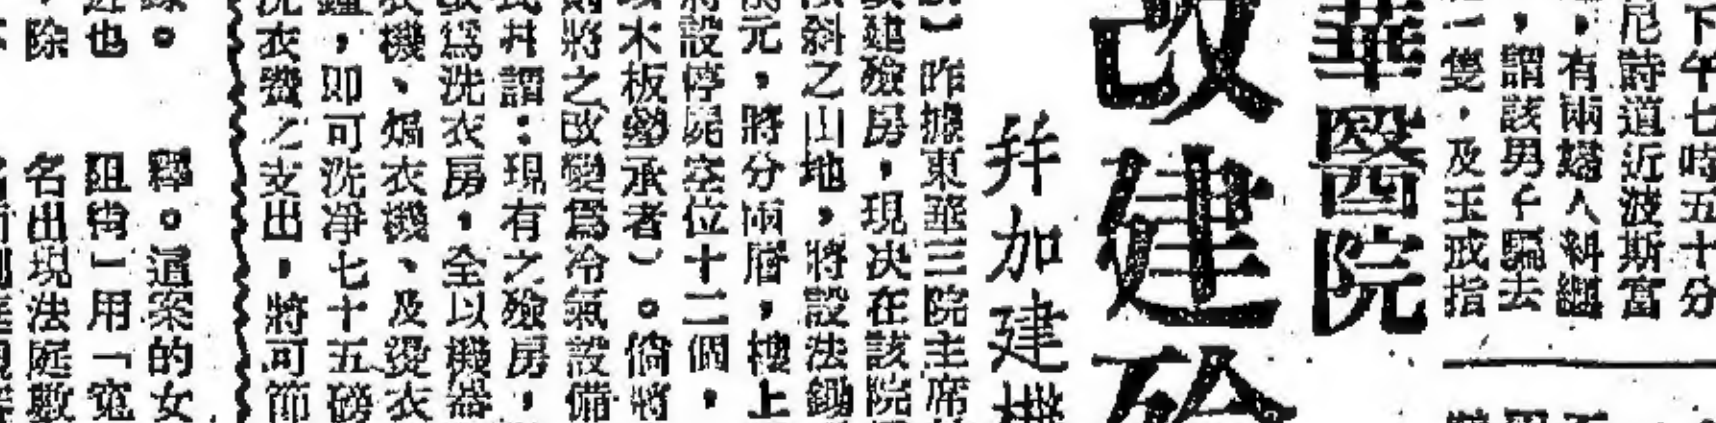 下午七時五十分
尼詩道近波斯富
，有兩婦人糾纏
，謂該男子騙去
一隻，及玉戒指
華醫院
改建殮
并加建機
）昨據東華三院主席
建殮房，現决在該院
斜之山地，將設法鋤
元，將分兩層，樓上
設停屍空位十二個，
木板勢承者）。倘將
將之改變爲冷氣設備
幷謂：現有之殮房，
爲洗衣房，全以機器
衣機、焗衣機、及燙衣
，即可洗净七十五磅
洗衣費之支出，將可節
。
釋。這案的女
近也
阻街」用「寃
，除
名出現法庭數